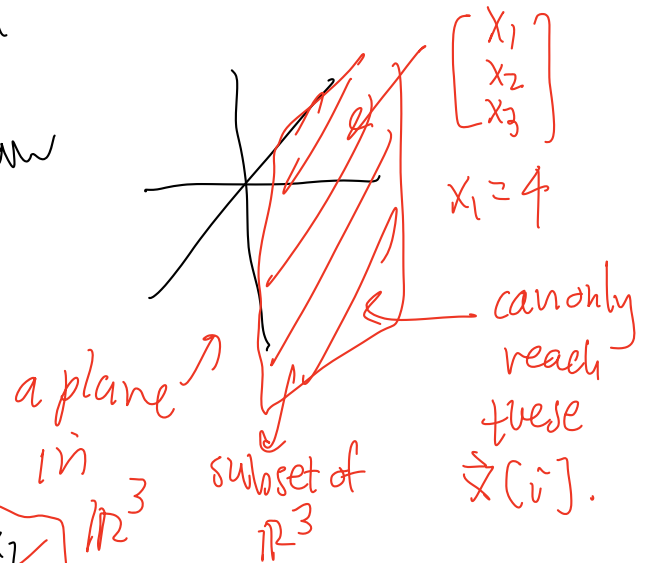 [x₁
x₂
x₃]
x₁ = 4
can only
reach
these
x⃗[i].
a plane
in
ℝ³
subset of
ℝ³